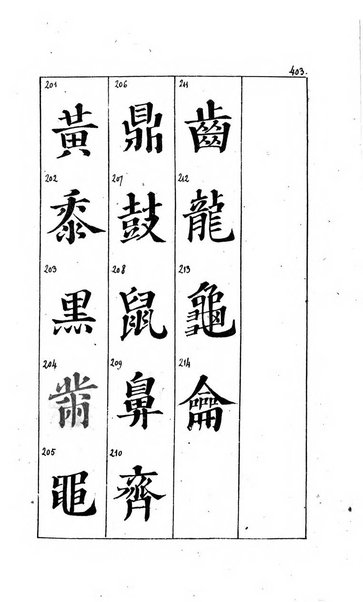 403.
201 黃
202 黍
203 黑
204 黹
205 黽
206 鼎
207 鼓
208 鼠
209 鼻
210 齊
211 齒
212 龍
213 龜
214 龠